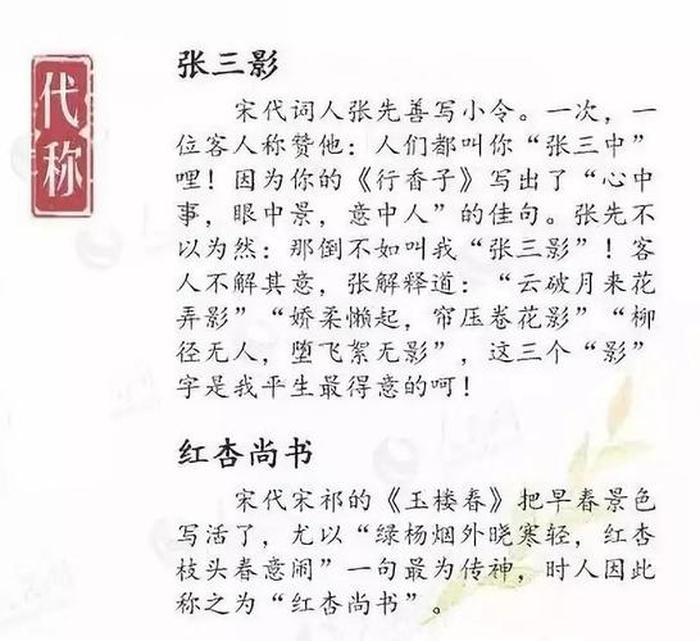 代称
张三影
宋代词人张先善写小令。一次，一
位客人称赞他：人们都叫你“张三中”
哩！因为你的《行香子》写出了“心中
事，眼中景，意中人”的佳句。张先不
以为然：那倒不如叫我“张三影”！客
人不解其意，张解释道：“云破月来花
弄影”“娇柔懒起，帘压卷花影”“柳
径无人，堕飞絮无影”，这三个“影”
字是我平生最得意的呵！
红杏尚书
宋代宋祁的《玉楼春》把早春景色
写活了，尤以“绿杨烟外晓寒轻，红杏
枝头春意闹”一句最为传神，时人因此
称之为“红杏尚书”。